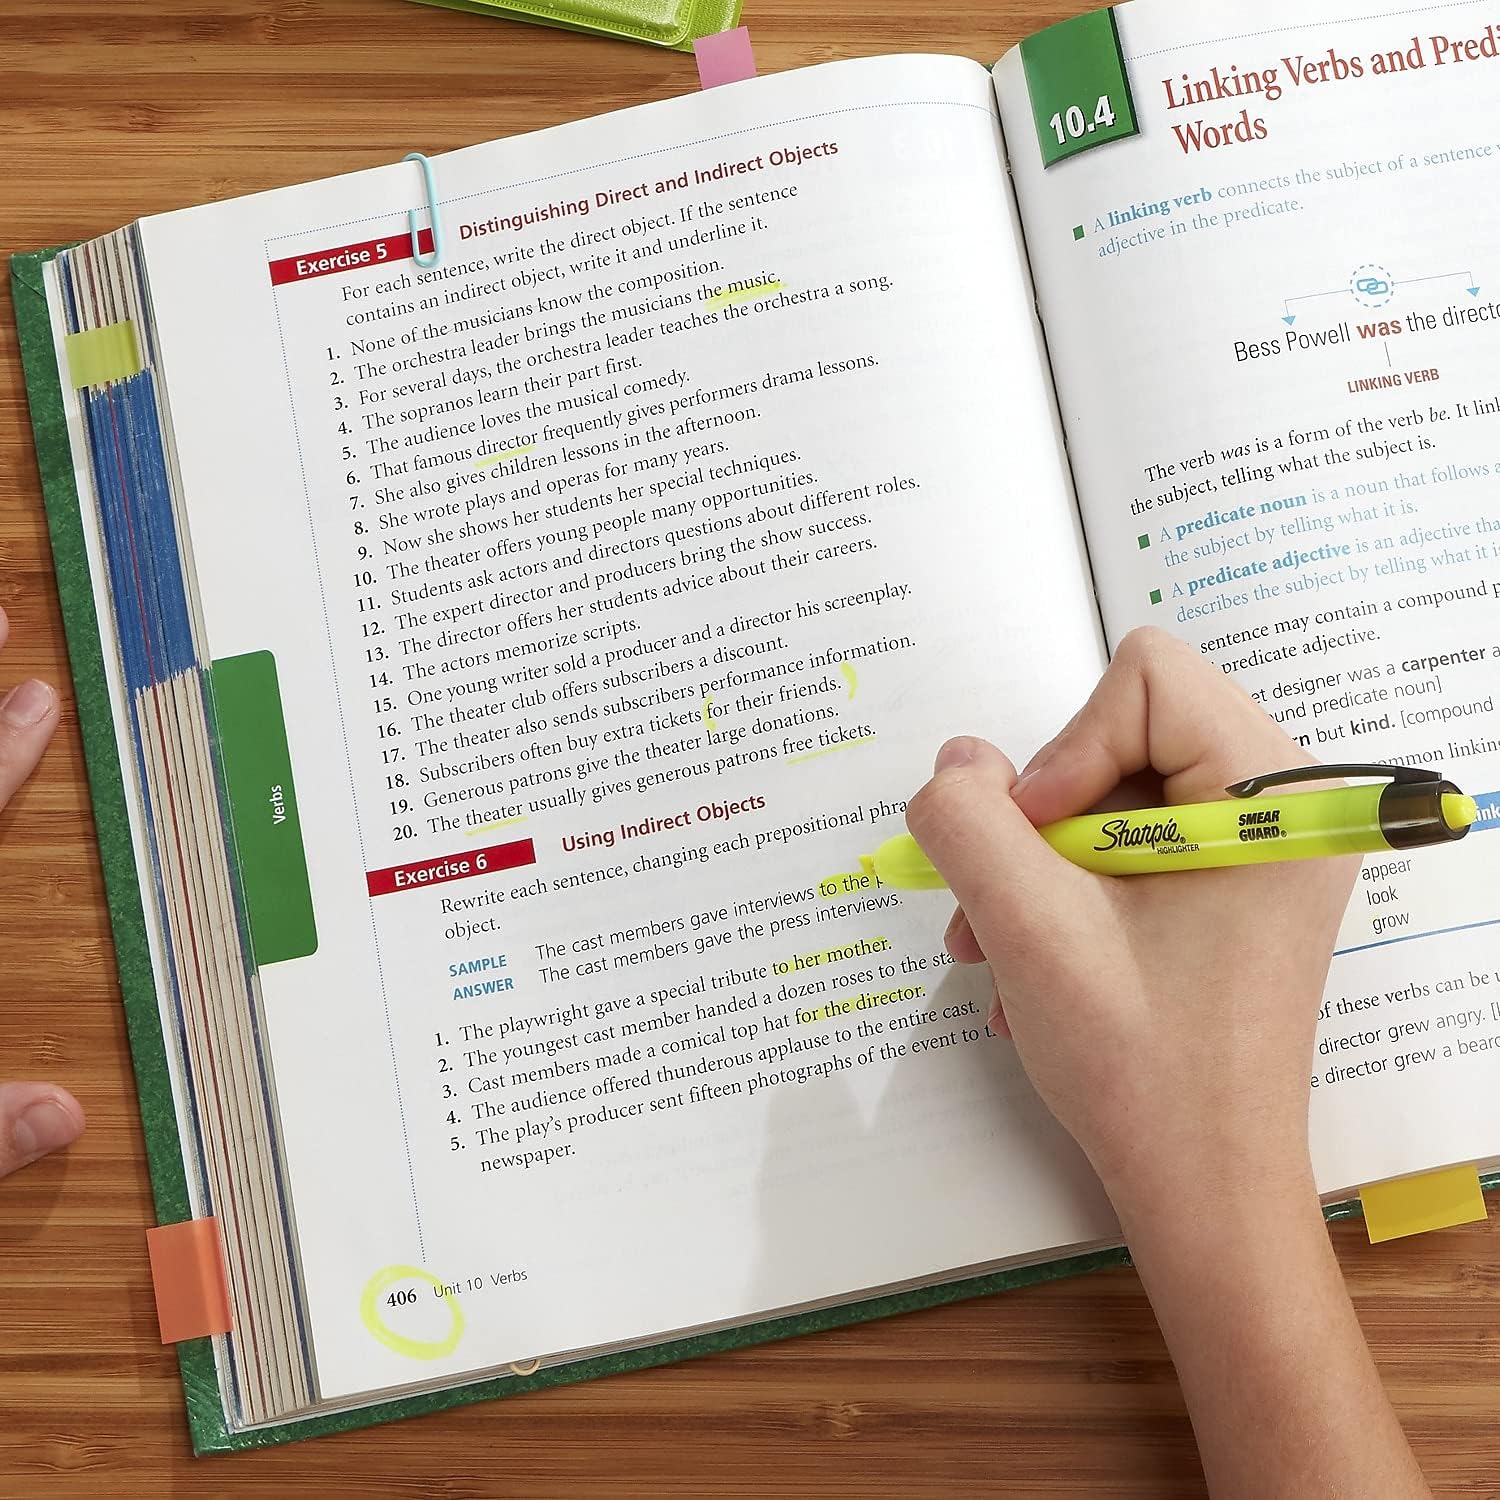 Exercise 5 Distinguishing Direct and Indirect Objects
For each sentence, write the direct object. If the sentence
contains an indirect object, write it and underline it.
1. None of the musicians know the composition.
2. The orchestra leader brings the musicians the music.
3. For several days, the orchestra leader teaches the orchestra a song.
4. The sopranos learn their part first.
5. The audience loves the musical comedy.
6. That famous director frequently gives performers drama lessons.
7. She also gives children lessons in the afternoon.
8. She wrote plays and operas for many years.
9. Now she shows her students her special techniques.
10. The theater offers young people many opportunities.
11. Students ask actors and directors questions about different roles.
12. The expert director and producers bring the show success.
13. The director offers her students advice about their careers.
14. The actors memorize scripts.
15. One young writer sold a producer and a director his screenplay.
16. The theater club offers subscribers a discount.
17. The theater also sends subscribers performance information.
18. Subscribers often buy extra tickets for their friends.
19. Generous patrons give the theater large donations.
20. The theater usually gives generous patrons free tickets.
Exercise 6 Using Indirect Objects
Rewrite each sentence, changing each prepositional
object.
SAMPLE The cast members gave interviews to the
ANSWER The cast members gave the press interviews.
1. The playwright gave a special tribute to her mother.
2. The youngest cast member handed a dozen roses to the
3. Cast members made a comical top hat for the director.
4. The audience offered thunderous applause to the entire cast.
5. The play's producer sent fifteen photographs of the event to
newspaper.
406 Unit 10 Verbs
Verbs
10.4 Linking Verbs and
Words
A linking verb connects the subject of a sentence
adjective in the predicate.
Bess Powell was the
LINKING VERB
The verb was is a form of the verb be. It
the subject, telling what the subject is.
A predicate noun is a noun that follows
the subject by telling what it is.
A predicate adjective is an adjective
describes the subject by telling what it
sentence may contain a compound
predicate adjective.
designer was a carpenter
predicate noun]
but kind. [compound
linking
appear
look
grow
of these verbs can be
director grew angry.
director grew a
Sharpie®
HIGHLIGHTER
SMEAR
GUARD®